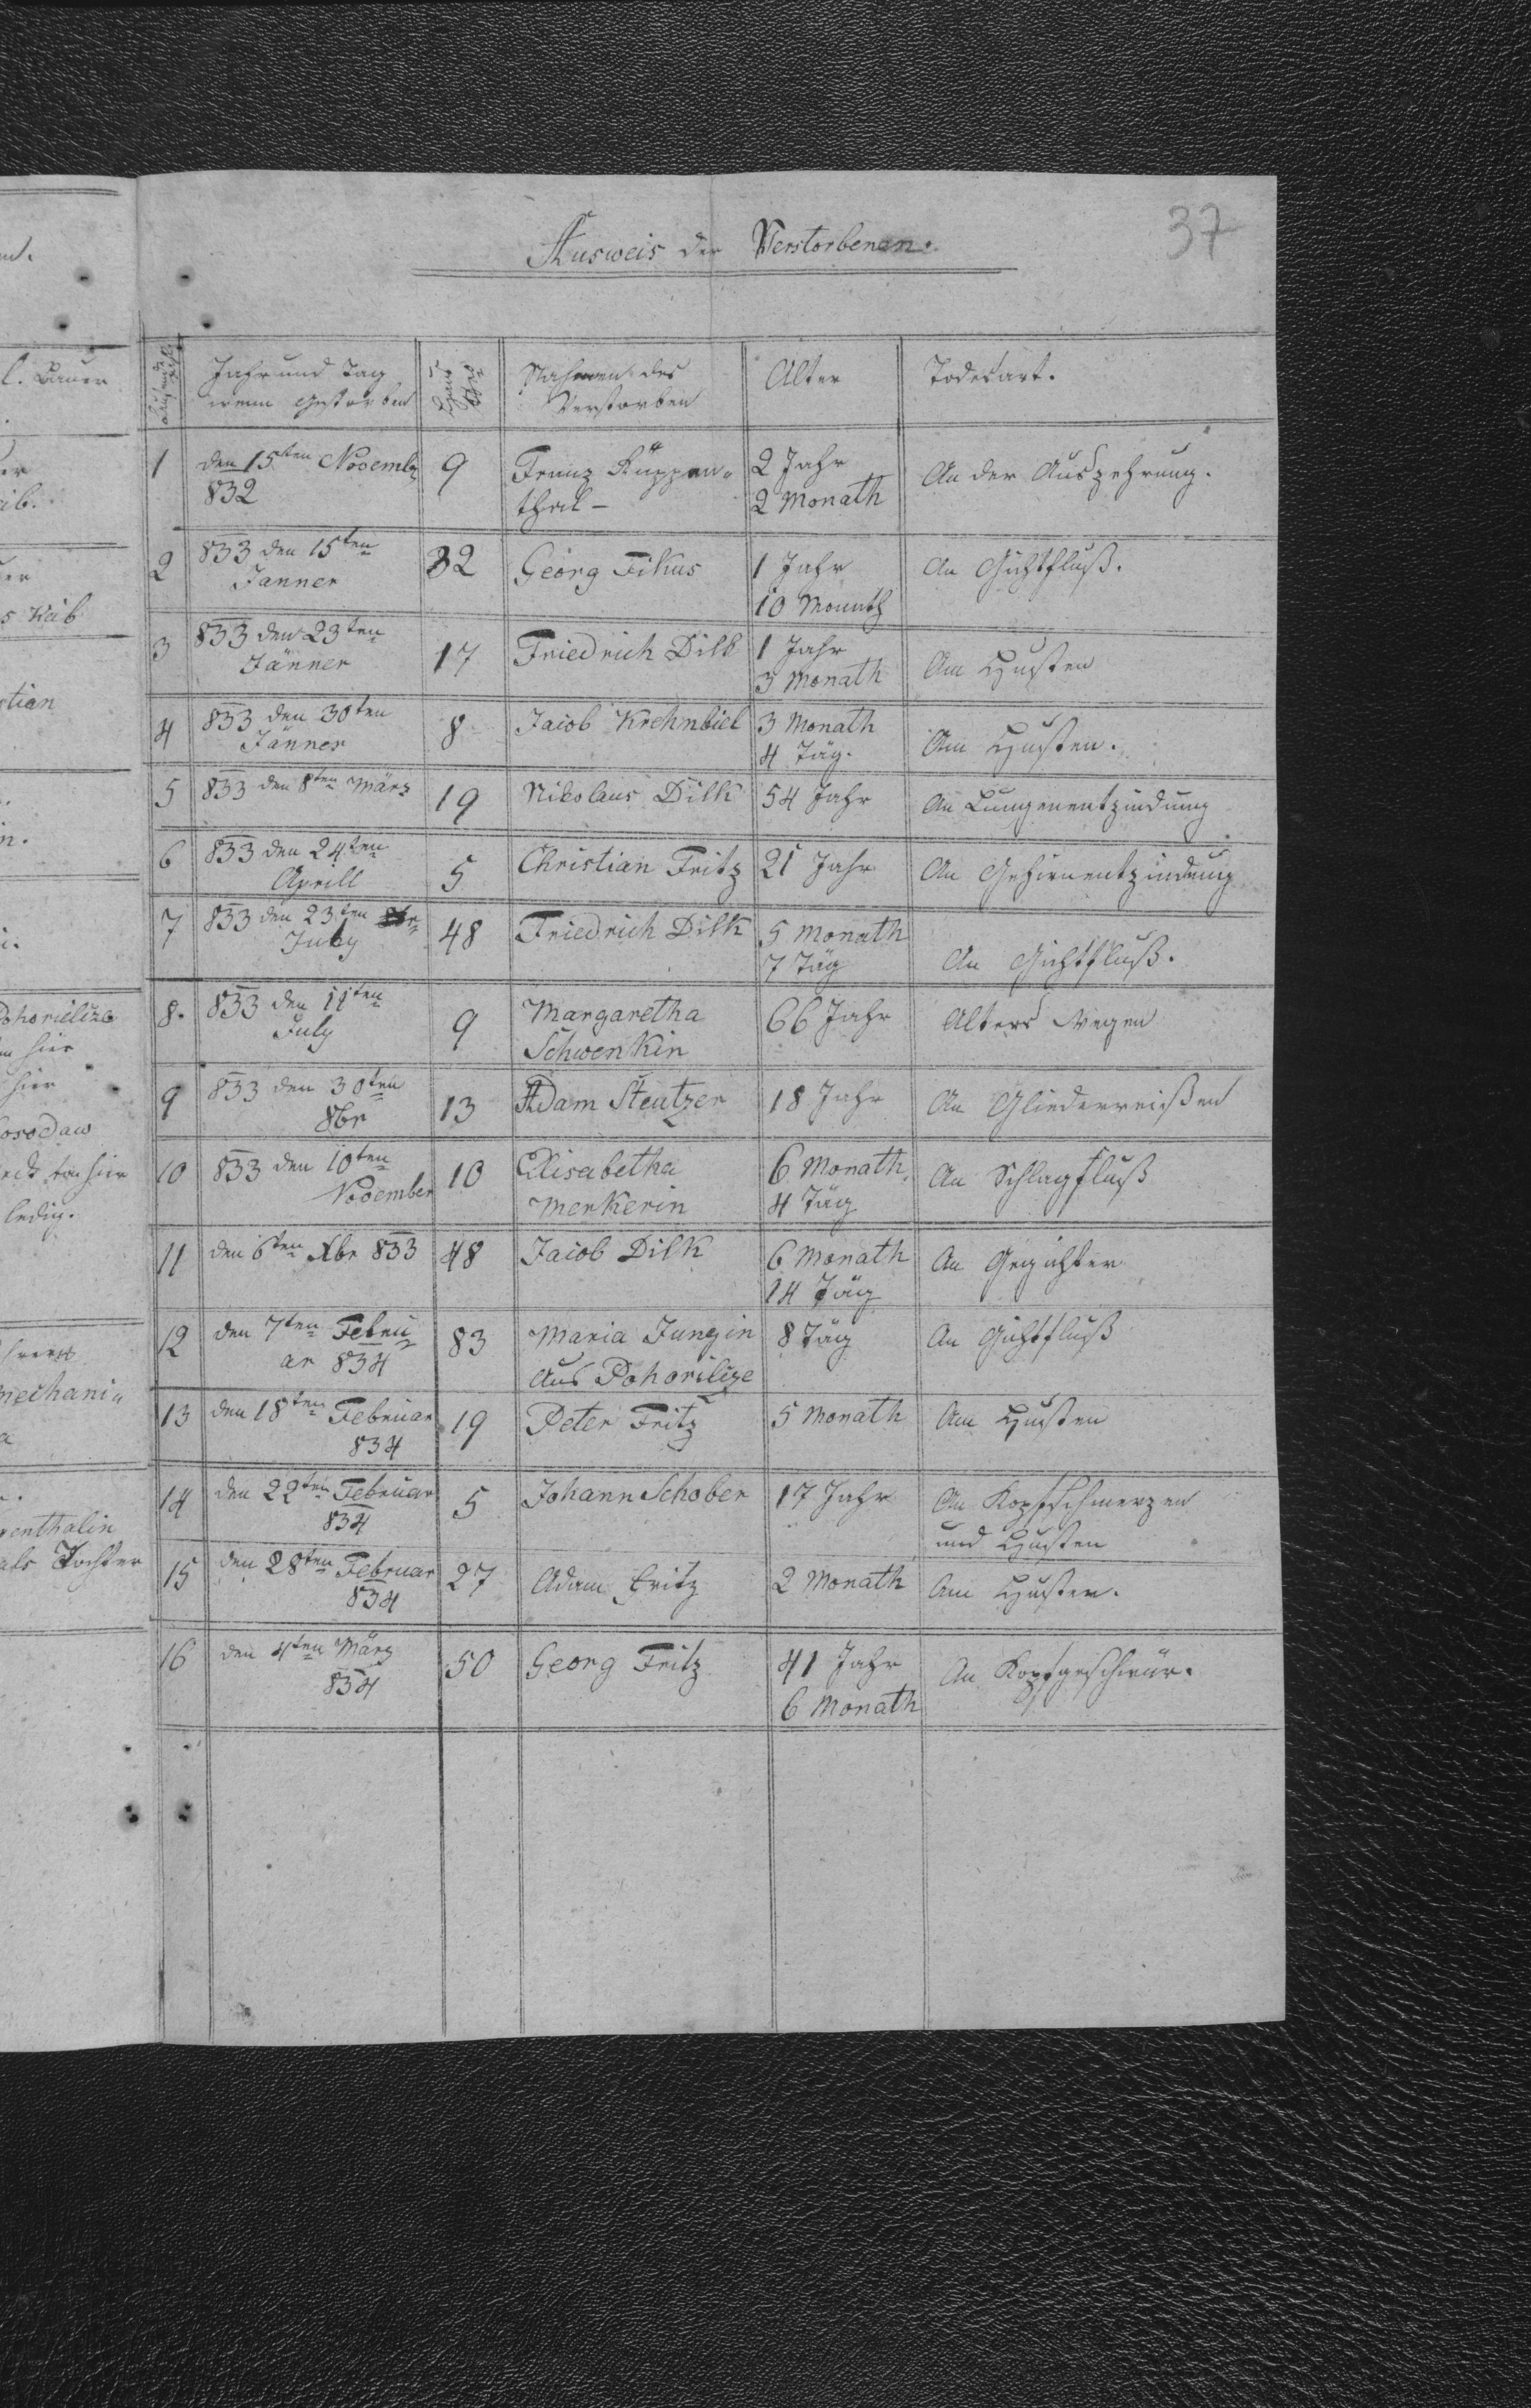 37
Ausweis der Verstorbenen.
Jahr und Tag wenn gestorben
Haus Nro
Nahmen des Verstorben
Alter
Todesart.
1 den 15ten Novemb 832 9 Franz Küppen- 2 Jahr An der Auszehrung.
thal - 2 Monath
2 833 den 15ten 32 Georg Fikus 1 Jahr An Gichtfluß.
Janner 10 Monath
3 833 den 23ten 17 Friedrich Dilk 1 Jahr Am Husten
Jänner 3 Monath
4 833 den 30ten 8 Jacob Krehnbiel 3 Monath Am Husten.
Jänner 4 Täg.
5 833 den 8ten März 19 Nikolaus Dilk 54 Jahr An Lungenentzindung
6 833 den 24ten 5 Christian Fritz 21 Jahr An Gehirnentzindung
Aprill
7 833 den 23ten 48 Friedrich Dilk 5 Monath An Gichtfluß.
July 7 Täg
8. 833 den 11ten 9 Margaretha 66 Jahr Alters Wegen
July Schwenkin
9 833 den 30ten 13 Adam Steutzer 18 Jahr An Gliederreißen
8br
10 833 den 10ten 10 Elisabetha 6 Monath An Schlagfluß
November Merkerin 4 Täg
11 den 6ten Xbr 833 48 Jacob Dilk 6 Monath An Gegichter
14 Täg
12 den 7ten Febru 83 Maria Jungin 8 Täg An Gichtfluß
ar 834 aus Pohorilize
13 den 18ten Februar 19 Peter Fritz 5 Monath Am Husten
834
14 den 22ten Februar 5 Johann Schober 17 Jahr An Kopfschmerzen
834 und Husten
15 den 28ten Februar 27 Adam Fritz 2 Monath Am Husten.
834
16 den 4ten März 50 Georg Fritz 41 Jahr An Kopfgeschwür.
834 6 Monath